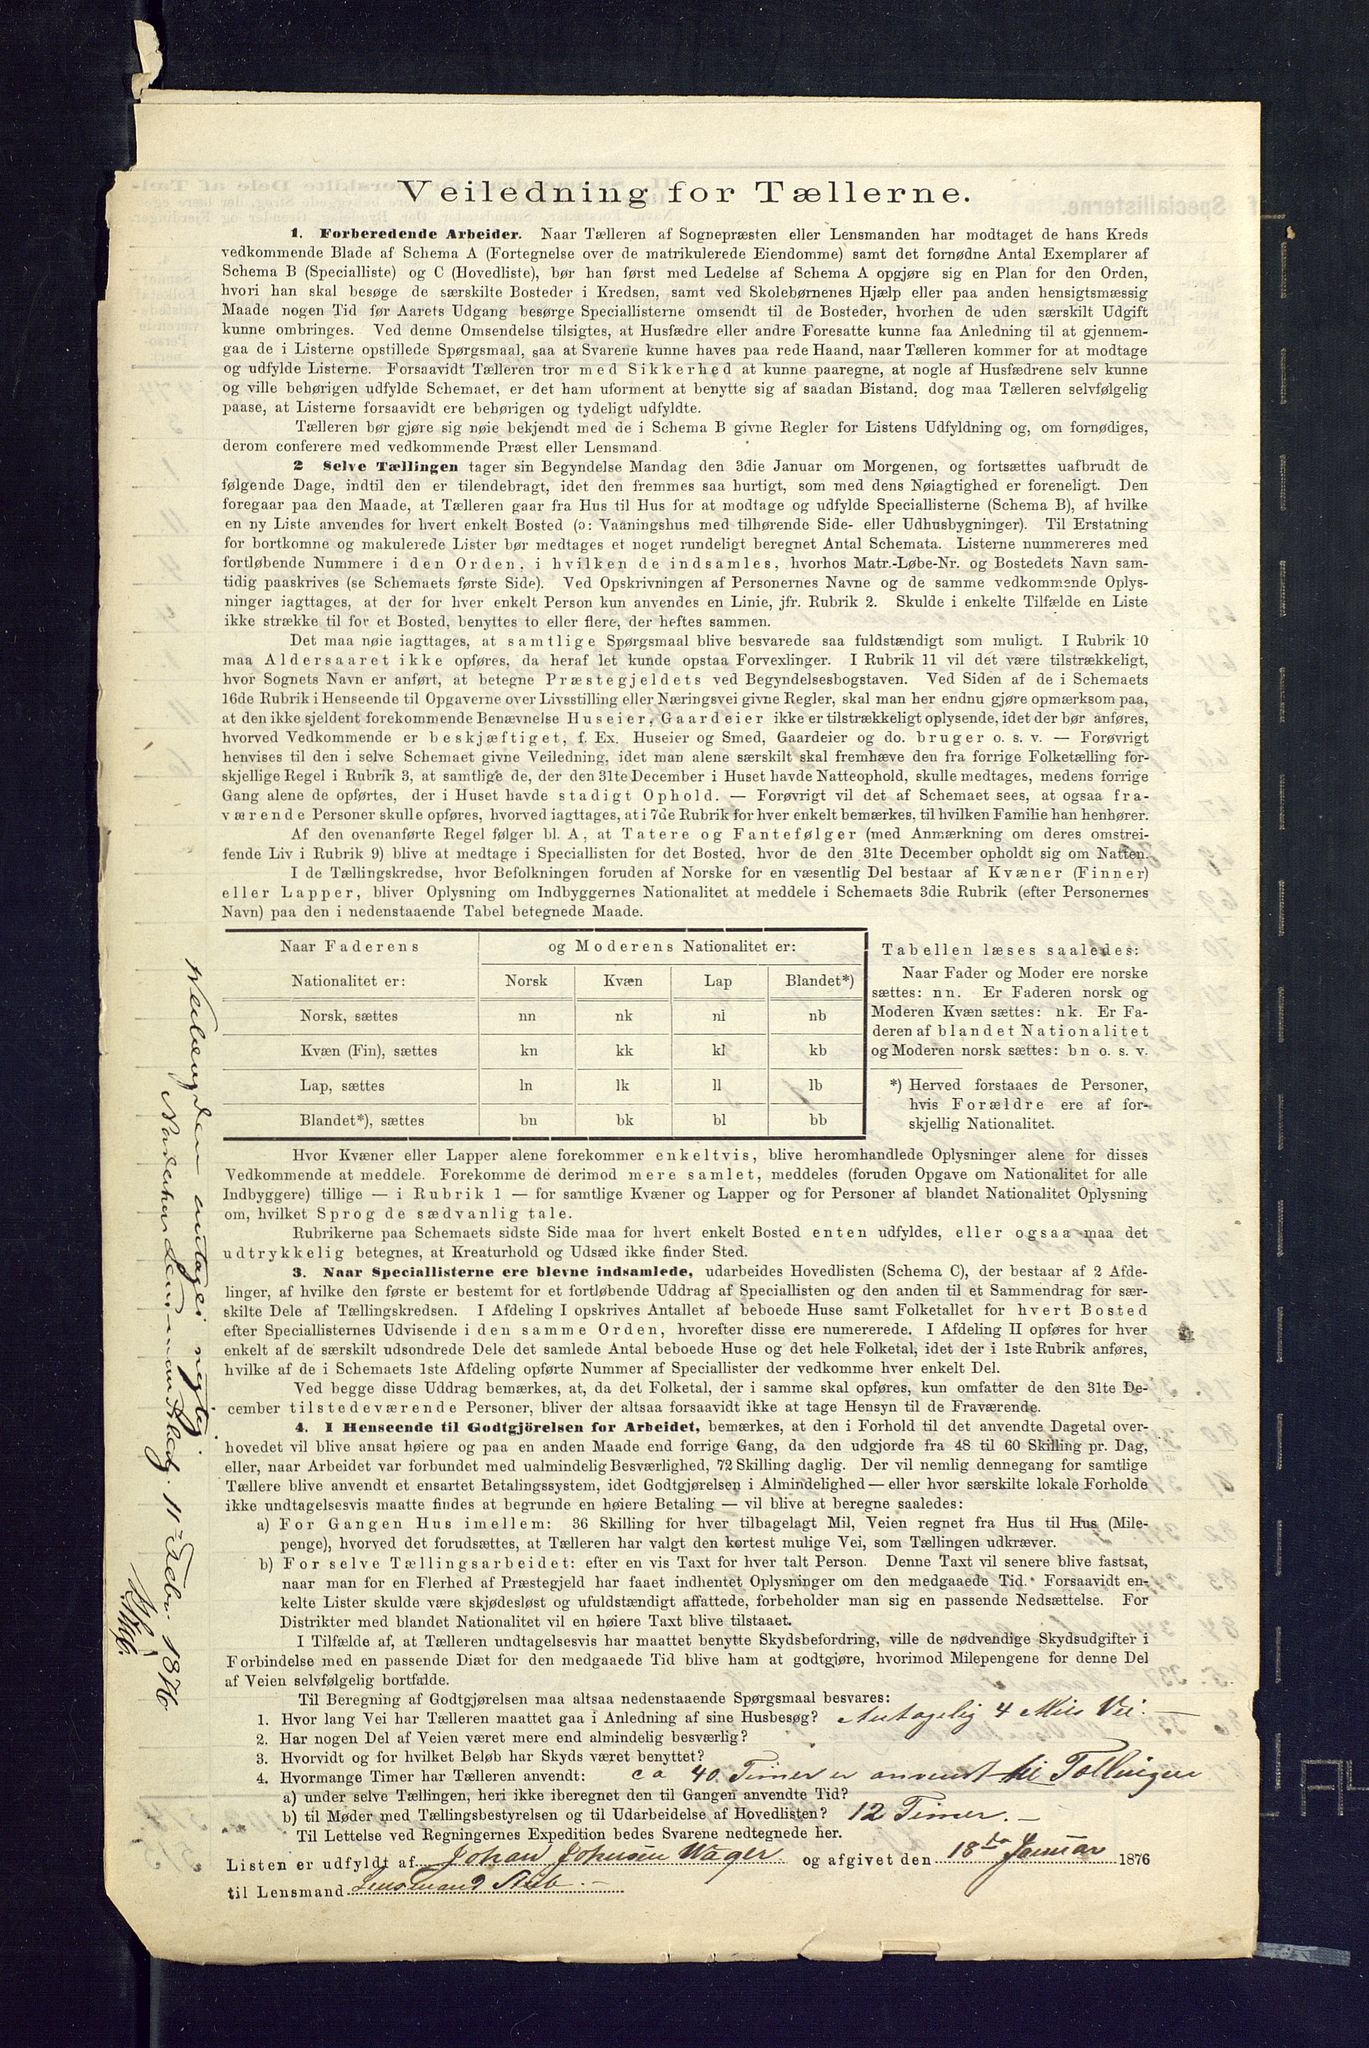 Veiledning for Tællerne.
1. Forberedende Arbeider. Naar Tælleren af Sognepræsten eller Lensmanden har modtaget de hans Kreds
vedkommende Blade af Schema A (Fortegnelse over de matrikulerede Eiendomme) samt det fornødne Antal Exemplarer af
Schema B (Specialliste) og C (Hovedliste), bør han først med Ledelse af Schema A opgjøre sig en Plan for den Orden,
hvori han skal besøge de særskilte Bosteder i Kredsen, samt ved Skolebørnenes Hjælp eller paa anden hensigtsmæssig
Maade nogen Tid før Aarets Udgang besørge Speciallisterne omsendt til de Bosteder, hvorhen de uden særskilt Udgift
kunne ombringes. Ved denne Omsendelse tilsigtes, at Husfædre eller andre Foresatte kunne faa Anledning til at gjennem-
gaa de i Listerne opstillede Spørgsmaal, saa at Svarene kunne haves paa rede Haand, naar Tælleren kommer for at modtage
og udfylde Listerne. Forsaavidt Tælleren tror med Sikkerhed at kunne paaregne, at nogle af Husfædrene selv kunne
og ville behørigen udfylde Schemaet, er det ham uforment at benytte sig af saadan Bistand, dog maa Tælleren selvfølgelig
paase, at Listerne forsaavidt ere behørigen og tydeligt udfyldte.
Tælleren bør gjøre sig nøie bekjendt med de i Schema B givne Regler for Listens Udfyldning og, om fornødiges,
derom conferere med vedkommende Præst eller Lensmand.
2 Selve Tællingen tager sin Begyndelse Mandag den 3die Januar om Morgenen, og fortsættes uafbrudt de
følgende Dage, indtil den er tilendebragt, idet den fremmes saa hurtigt, som med dens Nøiagtighed er foreneligt. Den
foregaar paa den Maade, at Tælleren gaar fra Hus til Hus for at modtage og udfylde Speciallisterne (Schema B), af hvilke
en ny Liste anvendes for hvert enkelt Bosted (ɔ: Vaaningshus med tilhørende Side- eller Udhusbygninger). Til Erstatning
for bortkomne og makulerede Lister bør medtages et noget rundeligt beregnet Antal Schemata. Listerne nummereres med
fortløbende Nummere i den Orden, i hvilken de indsamles, hvorhos Matr.-Løbe-Nr. og Bostedets Navn sam-
tidig paaskrives (se Schemaets første Side). Ved Opskrivningen af Personernes Navne og de samme vedkommende Oplys-
ninger iagttages, at der for hver enkelt Person kun anvendes en Linie, jfr. Rubrik 2. Skulde i enkelte Tilfælde en Liste
ikke strække til for et Bosted, benyttes to eller flere, der heftes sammen.
Det maa nøie iagttages, at samtlige Spørgsmaal blive besvarede saa fuldstændigt som muligt. I Rubrik 10
maa Aldersaaret ikke opføres, da heraf let kunde opstaa Forvexlinger. I Rubrik 11 vil det være tilstrækkeligt,
hvor Sognets Navn er anført, at betegne Præstegjeldets ved Begyndelsesbogstaven. Ved Siden af de i Schemaets
16de Rubrik i Henseende til Opgaverne over Livsstilling eller Næringsvei givne Regler, skal man her endnu gjøre opmærksom paa,
at den ikke sjeldent forekommende Benævnelse Huseier, Gaardeier ikke er tilstrækkeligt oplysende, idet der bør anføres,
hvorved Vedkommende er beskjæftiget, f. Ex. Huseier og Smed, Gaardeier og do. bruger o. s. v. — Forøvrigt
henvises til den i selve Schemaet givne Veiledning, idet man alene særskilt skal fremhæve den fra forrige Folketælling for-
skjellige Regel i Rubrik 3, at samtlige de, der den 31te December i Huset havde Natteophold, skulle medtages, medens forrige
Gang alene de opførtes, der i Huset havde stadigt Ophold. — Forøvrigt vil det af Schemaet sees, at ogsaa fra-
værende Personer skulle opføres, hvorved iagttages, at i 7de Rubrik for hver enkelt bemærkes, til hvilken Familie han henhører.
Af den ovenanførte Regel følger bl. A, at Tatere og Fantefølger (med Anmærkning om deres omstrei-
fende Liv i Rubrik 9) blive at medtage i Speciallisten for det Bosted, hvor de den 31te December opholdt sig om Natten.
I de Tællingskredse, hvor Befolkningen foruden af Norske for en væsentlig Del bestaar af Kvæner (Finner)
eller Lapper, bliver Oplysning om Indbyggernes Nationalitet at meddele i Schemaets 3die Rubrik (efter Personernes
Navn) paa den i nedenstaaende Tabel betegnede Maade.
Naar Faderens og Moderens Nationalitet er:
Nationalitet er: Norsk Kvæn Lap Blandet*)
Norsk, sættes nn nk nl nb
Kvæn (Fin), sættes kn kk kl kb
Lap, sættes ln lk ll lb
Blandet*), sættes bn bk bl bb
Tabellen læses saaledes:
Naar Fader og Moder ere norske
sættes: nn. Er Faderen norsk og
Moderen Kvæn sættes: nk. Er Fa-
deren af blandet Nationalitet
og Moderen norsk sættes: bn o. s. v.
*) Herved forstaaes de Personer,
hvis Forældre ere af for-
skjellig Nationalitet.
Hvor Kvæner eller Lapper alene forekommer enkeltvis, blive heromhandlede Oplysninger alene for disses
Vedkommende at meddele. Forekomme de derimod mere samlet, meddeles (foruden Opgave om Nationalitet for alle
Indbyggere) tillige — i Rubrik 1 — for samtlige Kvæner og Lapper og for Personer af blandet Nationalitet Oplysning
om, hvilket Sprog de sædvanlig tale.
Rubrikerne paa Schemaets sidste Side maa for hvert enkelt Bosted enten udfyldes, eller ogsaa maa det
udtrykkelig betegnes, at Kreaturhold og Udsæd ikke finder Sted.
3. Naar Speciallisterne ere blevne indsamlede, udarbeides Hovedlisten (Schema C), der bestaar af 2 Afde-
linger, af hvilke den første er bestemt for et fortløbende Uddrag af Speciallisten og den anden til et Sammendrag for sær-
skilte Dele af Tællingskredsen. I Afdeling I opskrives Antallet af beboede Huse samt Folketallet for hvert Bosted
efter Speciallisternes Udvisende i den samme Orden, hvorefter disse ere nummererede. I Afdeling II opføres for hver
enkelt af de særskilt udsondrede Dele det samlede Antal beboede Huse og det hele Folketal, idet der i 1ste Rubrik anføres,
hvilke af de i Schemaets 1ste Afdeling opførte Nummer af Speciallister der vedkomme hver enkelt Del.
Ved begge disse Uddrag bemærkes, at, da det Folketal, der i samme skal opføres, kun omfatter de den 31te De-
cember tilstedeværende Personer, bliver der altsaa forsaavidt ikke at tage Hensyn til de Fraværende.
4. I Henseende til Godtgjörelsen for Arbeidet, bemærkes, at den i Forhold til det anvendte Dagetal over-
hovedet vil blive ansat høiere og paa en anden Maade end forrige Gang, da den udgjorde fra 48 til 60 Skilling pr. Dag,
eller, naar Arbeidet var forbundet med ualmindelig Besværlighed, 72 Skilling daglig. Der vil nemlig dennegang for samtlige
Tællere blive anvendt et ensartet Betalingssystem, idet Godtgjørelsen i Almindelighed — eller hvor særskilte lokale Forholde
ikke undtagelsesvis maatte findes at begrunde en høiere Betaling — vil blive at beregne saaledes:
a) For Gangen Hus imellem: 36 Skilling for hver tilbagelagt Mil, Veien regnet fra Hus til Hus (Mile-
penge), hvorved det forudsættes, at Tælleren har valgt den kortest mulige Vei, som Tællingen udkræver.
b) For selve Tællingsarbeidet: efter en vis Taxt for hver talt Person. Denne Taxt vil senere blive fastsat,
naar man for en Flerhed af Præstegjeld har faaet indhentet Oplysninger om den medgaaede Tid. Forsaavidt en-
kelte Lister skulde være skjødesløst og ufuldstændigt affattede, forbeholder man sig en passende Nedsættelse. For
Distrikter med blandet Nationalitet vil en høiere Taxt blive tilstaaet.
I Tilfælde af, at Tælleren undtagelsesvis har maattet benytte Skydsbefordring, ville de nødvendige Skydsudgifter i
Forbindelse med en passende Diæt for den medgaaede Tid blive ham at godtgjøre, hvorimod Milepengene for denne Del
af Veien selvfølgelig bortfalde.
Til Beregning af Godtgjørelsen maa altsaa nedenstaaende Spørgsmaal besvares:
1. Hvor lang Vei har Tælleren maattet gaa i Anledning af sine Husbesøg? Antagelig 4 Miils Vei. —
2. Har nogen Del af Veien været mere end almindelig besværlig?
3. Hvorvidt og for hvilket Beløb har Skyds været benyttet?
4. Hvormange Timer har Tælleren anvendt: ca 40 Timer er anvendt til Tællingen
a) under selve Tællingen, heri ikke iberegnet den til Gangen anvendte Tid?
b) til Møder med Tællingsbestyrelsen og til Udarbeidelse af Hovedlisten? 12 Timer. —
Til Lettelse ved Regningernes Expedition bedes Svarene nedtegnede her.
Listen er udfyldt af Johan Johnsen Wager og afgivet den 18de Januar 1876
til Lensmand Lensmand Stub. —
Veilængden antages rigtig.
11 Febr. 1876